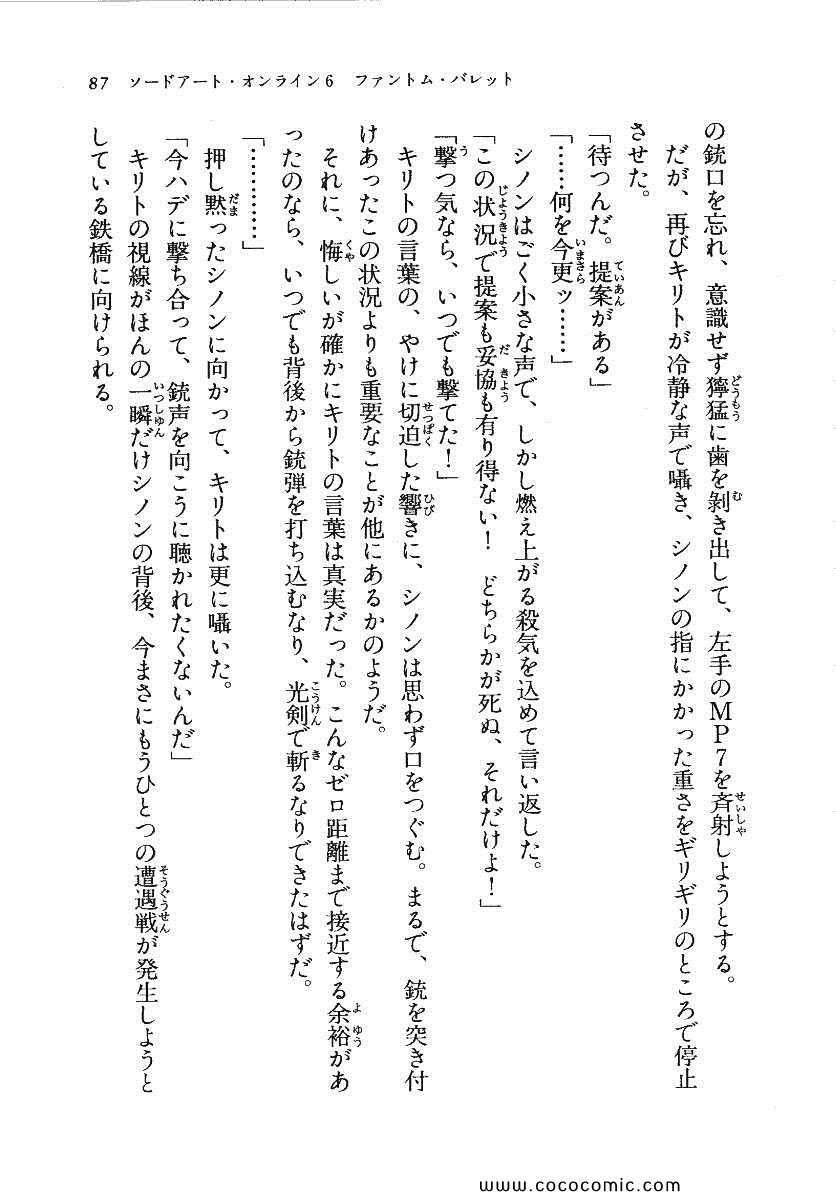 87 ソードアート・オンライン6 ファントム・バレット
の銃口を忘れ、意識せず獰猛に歯を剥き出して、左手のMP7を斉射しようとする。
だが、再びキリトが冷静な声で囁き、シノンの指にかかった重さをギリギリのところで停止
させた。
「待つんだ。提案がある」
「……何を今更ッ……」
シノンはごく小さな声で、しかし燃え上がる殺気を込めて言い返した。
「この状況で提案も妥協も有り得ない! どちらかが死ぬ、それだけよ!」
「撃つ気なら、いつでも撃てた!」
キリトの言葉の、やけに切迫した響きに、シノンは思わず口をつぐむ。まるで、銃を突き付
けあったこの状況よりも重要なことが他にあるかのようだ。
それに、悔しいが確かにキリトの言葉は真実だった。こんなゼロ距離まで接近する余裕があ
ったのなら、いつでも背後から銃弾を打ち込むなり、光剣で斬るなりできたはずだ。
「…………」
押し黙ったシノンに向かって、キリトは更に囁いた。
「今ハデに撃ち合って、銃声を向こうに聴かれたくないんだ」
キリトの視線がほんの一瞬だけシノンの背後、今まさにもうひとつの遭遇戦が発生しようと
している鉄橋に向けられる。
www.cococomic.com